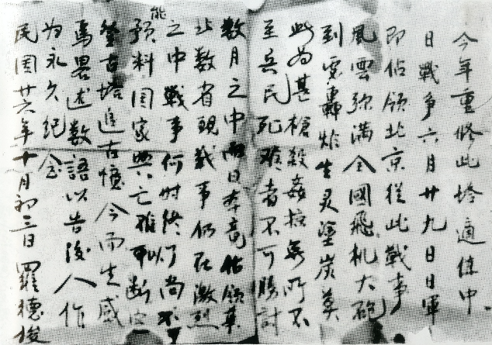 今年重修此塔適值中
日戰争六月廿九日日軍
即佔領北京從此戰事
風雲弥满全國飛机大砲
到處轟炸生灵塗炭莫
此为甚槍殺姦掠無所不
至兵民死难者不可勝計
數月之中而日本竟佔領華
北數省現戰事仍在激烈
之中戰事何时终了尚不
能預料國家興亡难以断定
登古塔追古憶今而生感
焉畧述數語以告後人作
为永久紀念
民國廿六年十月初三日 羅德俊